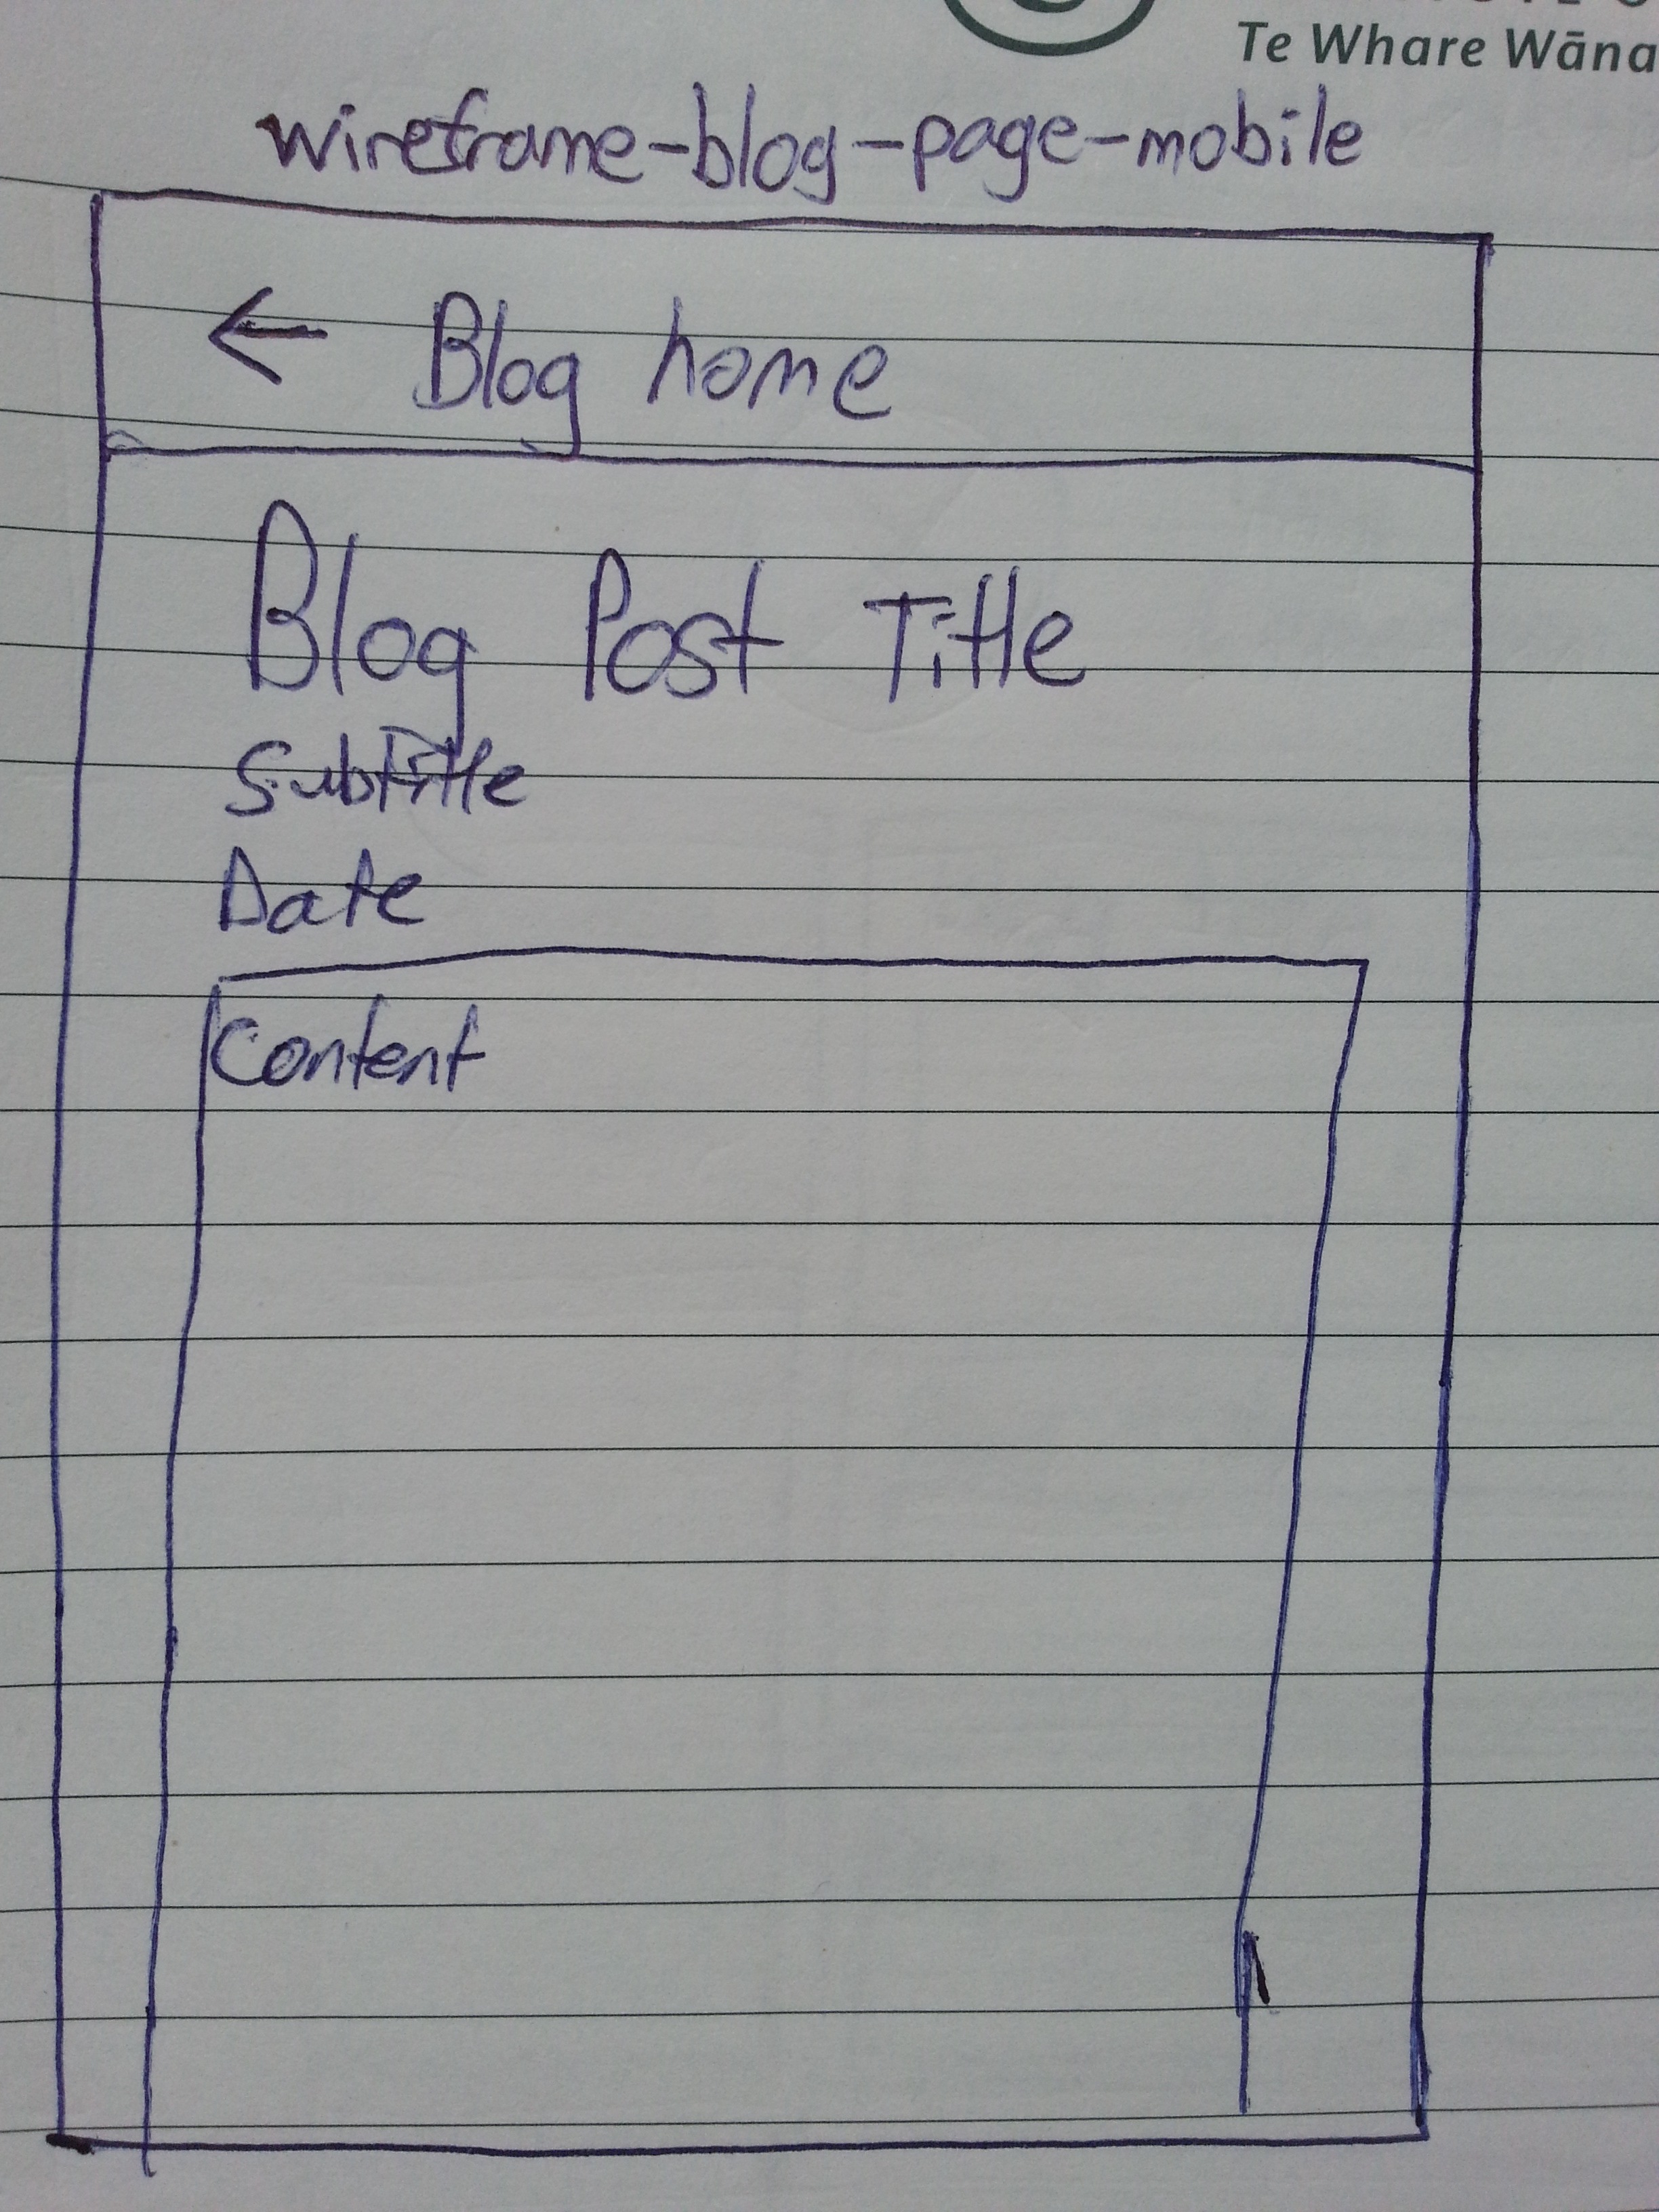 Te Whare Wāna
wireframe-blog-page-mobile
← Blog home
Blog Post Title
Subtitle
Date
Content